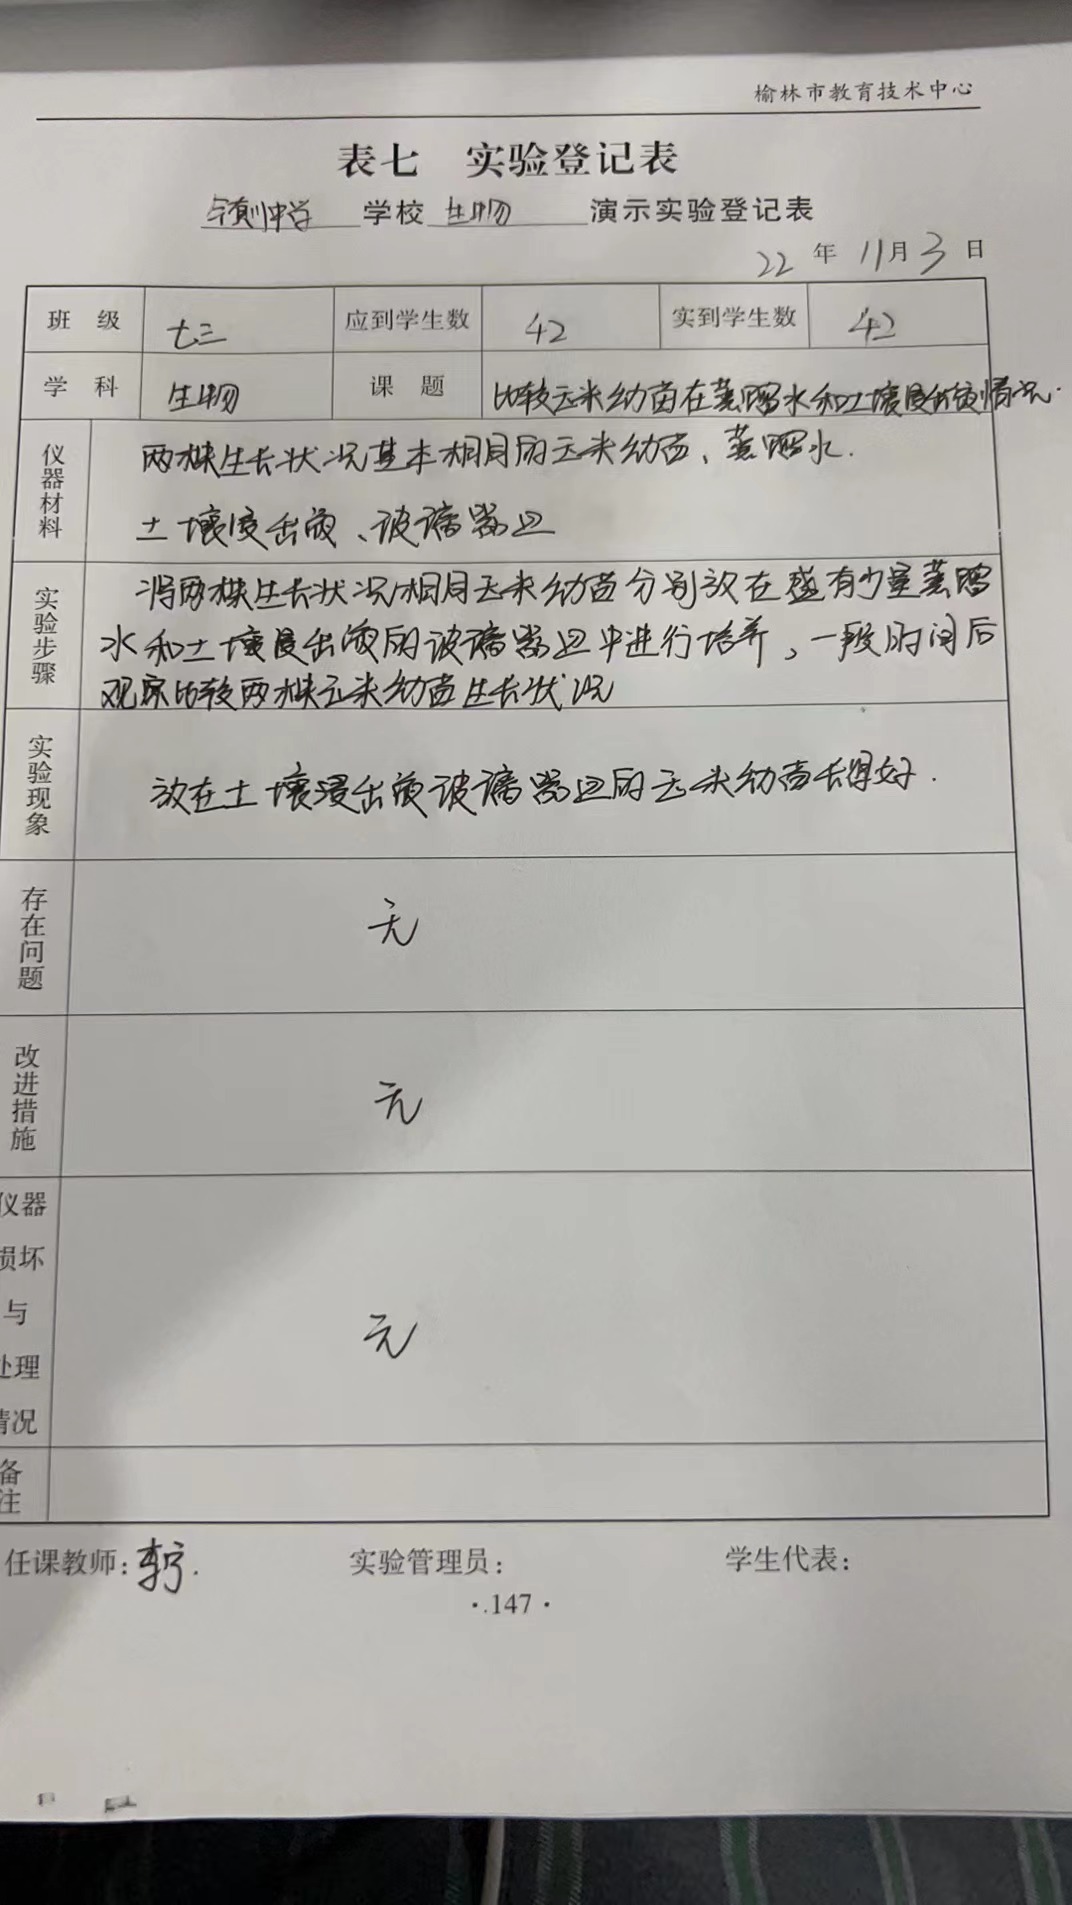 榆林市教育技术中心
表七 实验登记表
中学 学校 生物 演示实验登记表
22 年 11月 3 日
班 级 七三 应到学生数 42 实到学生数 42
学 科 生物 课 题 比较玉米幼苗在蒸馏水和土壤浸出液情况.
仪器材料 两株生长状况基本相同的玉米幼苗、蒸馏水.
土壤浸出液、玻璃器皿
实验步骤 将两株生长状况相同玉米幼苗分别放在盛有少量蒸馏
水和土壤浸出液的玻璃器皿中进行培养,一段时间后
观察比较两株玉米幼苗生长状况
实验现象 放在土壤浸出液玻璃器皿的玉米幼苗长得好.
存在问题 无
改进措施 无
仪器
损坏
与 无
处理
情况
备注
任课教师: 实验管理员: 学生代表:
·.147·